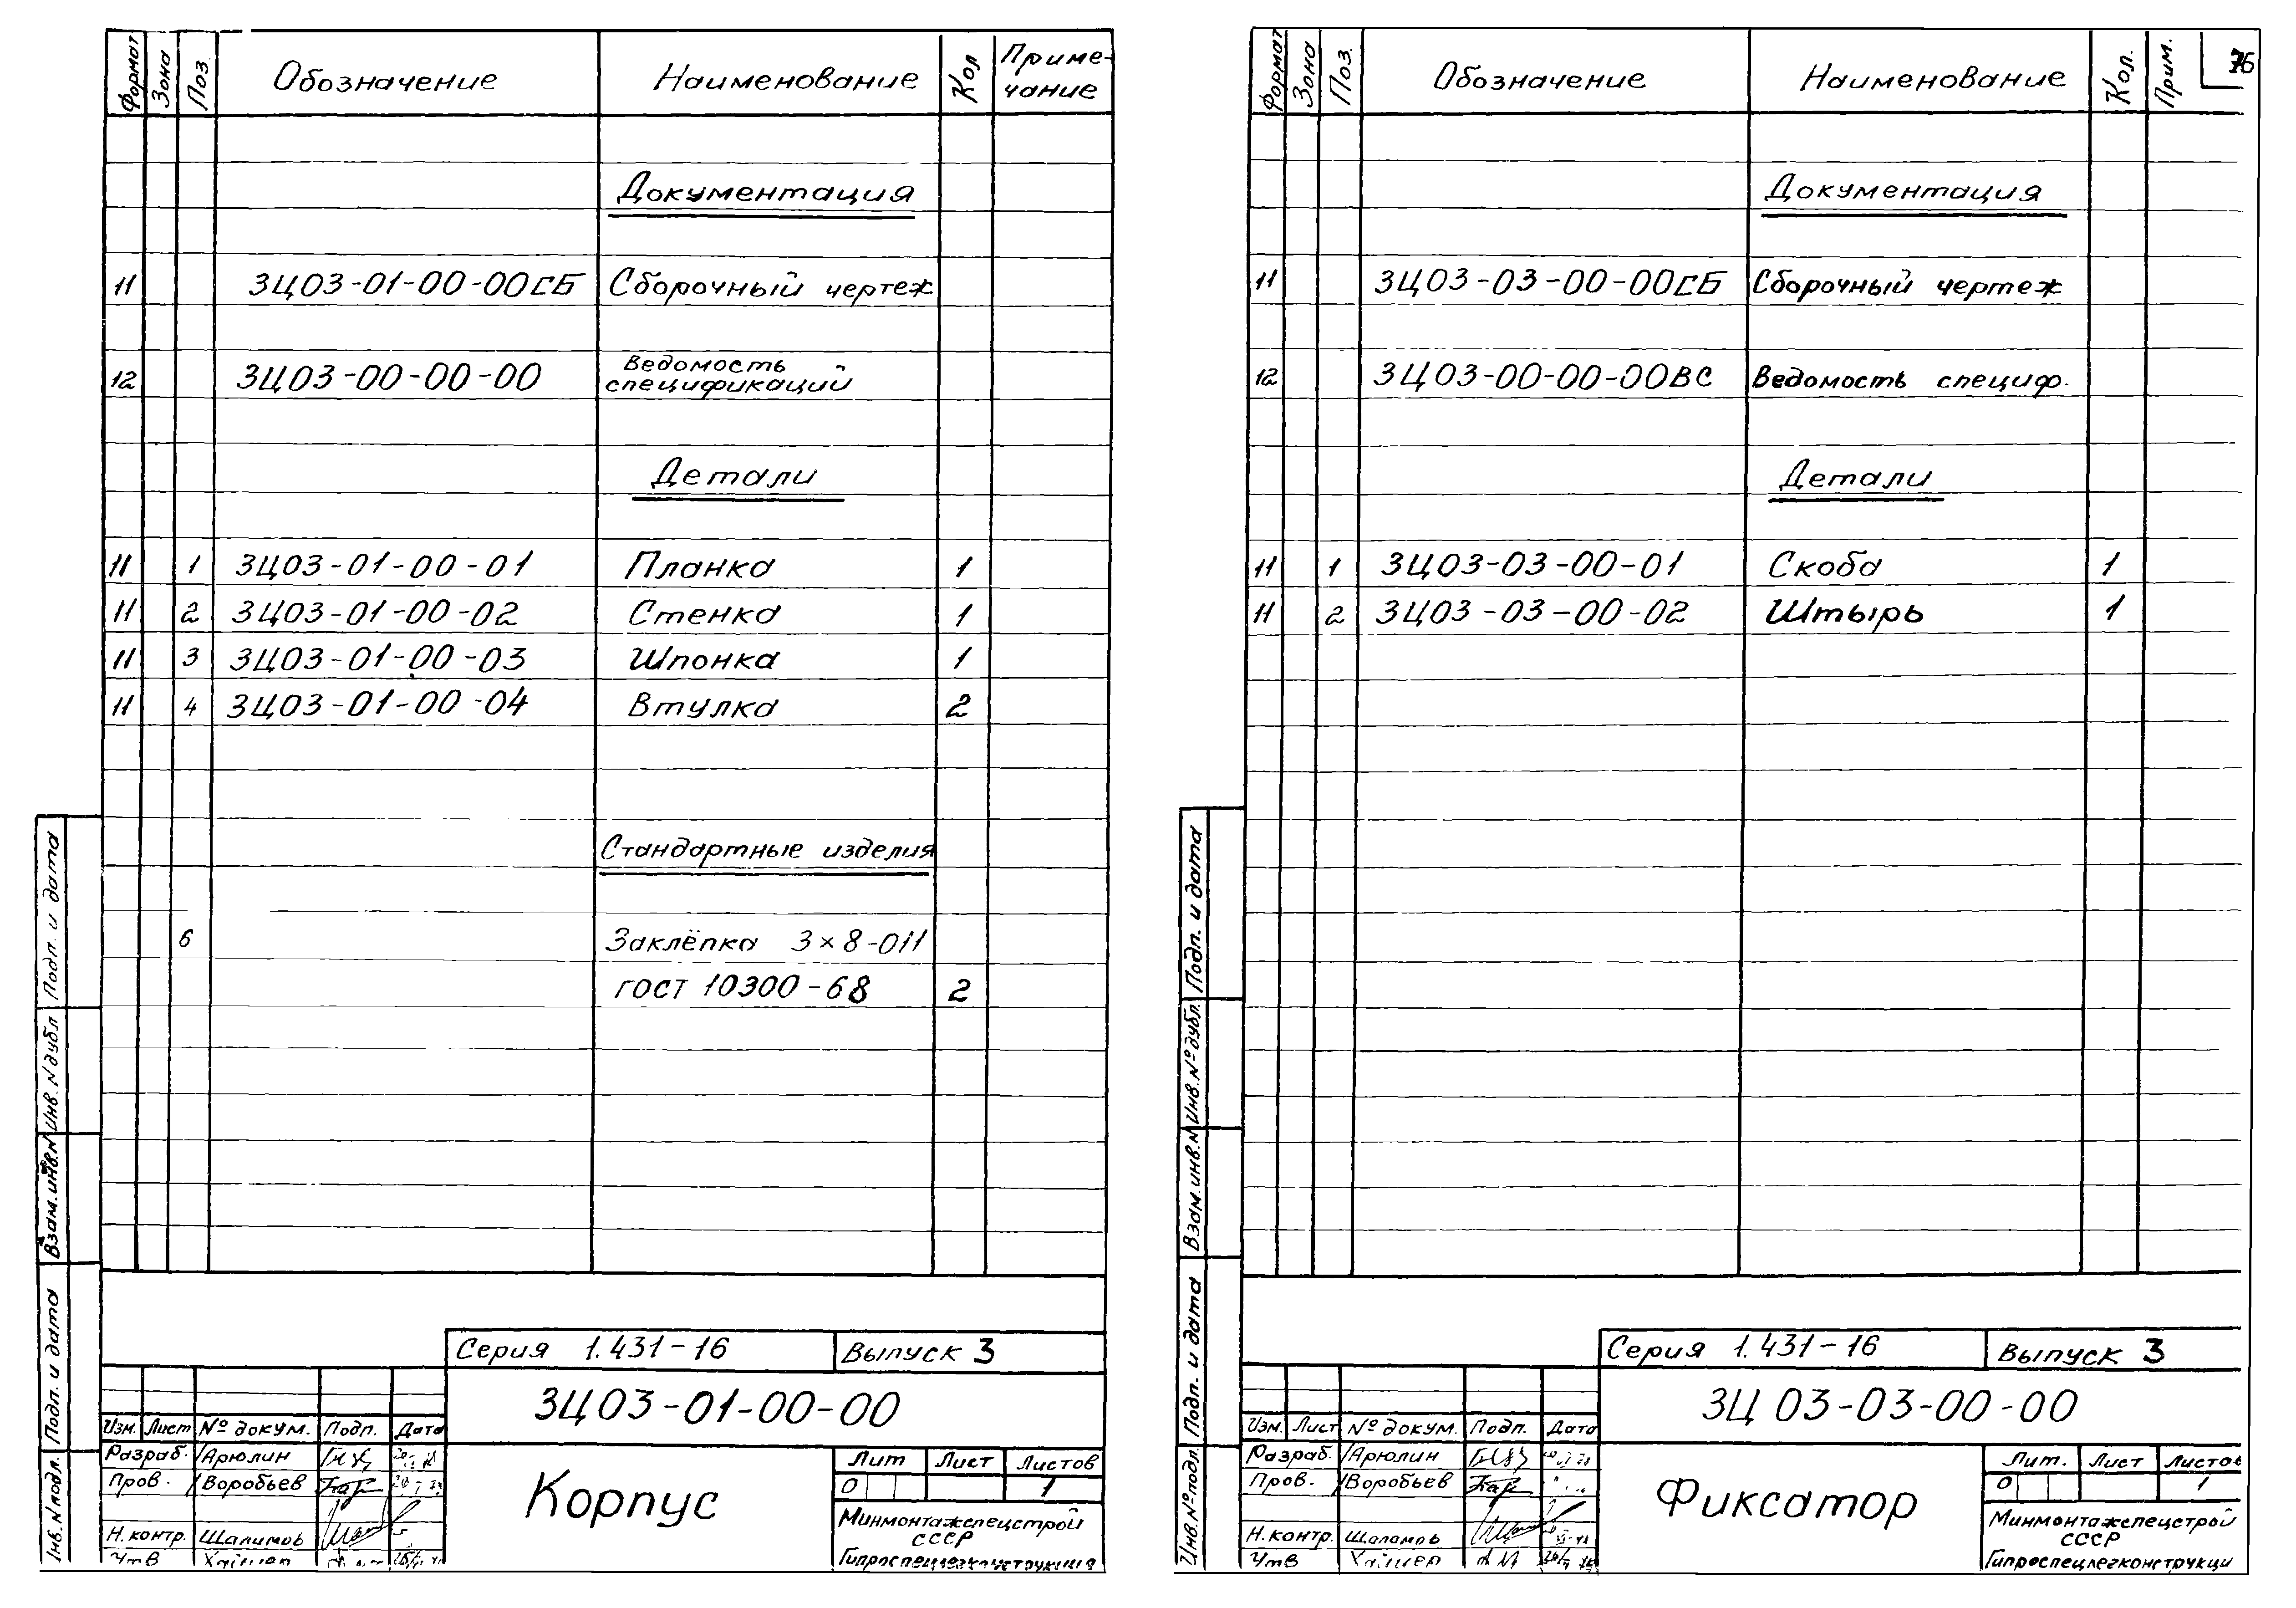 Формат Зона Поз. Обозначение Наименование Кол Приме-
чание
Документация
11 3Ц03-01-00-00СБ Сборочный чертеж
12 3Ц03-00-00-00 Ведомость
спецификаций
Детали
11 1 3Ц03-01-00-01 Планка 1
11 2 3Ц03-01-00-02 Стенка 1
11 3 3Ц03-01-00-03 Шпонка 1
11 4 3Ц03-01-00-04 Втулка 2
Стандартные изделия
6 Заклёпка 3×8-011
ГОСТ 10300-68 2
Подп. и дата
Инв. N дубл
Взам. инв. N
Подп. и дата
Инв. N подл.
Серия 1.431-16 Выпуск 3
3Ц03-01-00-00
Изм. Лист № докум. Подп. Дата
Разраб. Арюлин
Пров. Воробьев
Н. контр. Шалимов
Утв
Корпус
Лит Лист Листов
О 1
Минмонтажспецстрой
СССР
Гипроспецлегконструкция
Формат Зона Поз. Обозначение Наименование Кол. Прим. 76
Документация
11 3Ц03-03-00-00СБ Сборочный чертеж
12 3Ц03-00-00-00ВС Ведомость специф.
Детали
11 1 3Ц03-03-00-01 Скоба 1
11 2 3Ц03-03-00-02 Штырь 1
Подп. и дата
Инв. № дубл.
Взам. инв. N
Подп. и дата
Инв. № подл.
Серия 1.431-16 Выпуск 3
3Ц 03-03-00-00
Изм. Лист № докум. Подп. Дата
Разраб. Арюлин
Пров. Воробьев
Н. контр. Шаламов
Утв
Фиксатор
Лит. Лист Листов
О 1
Минмонтажспецстрой
СССР
Гипроспецлегконструкци